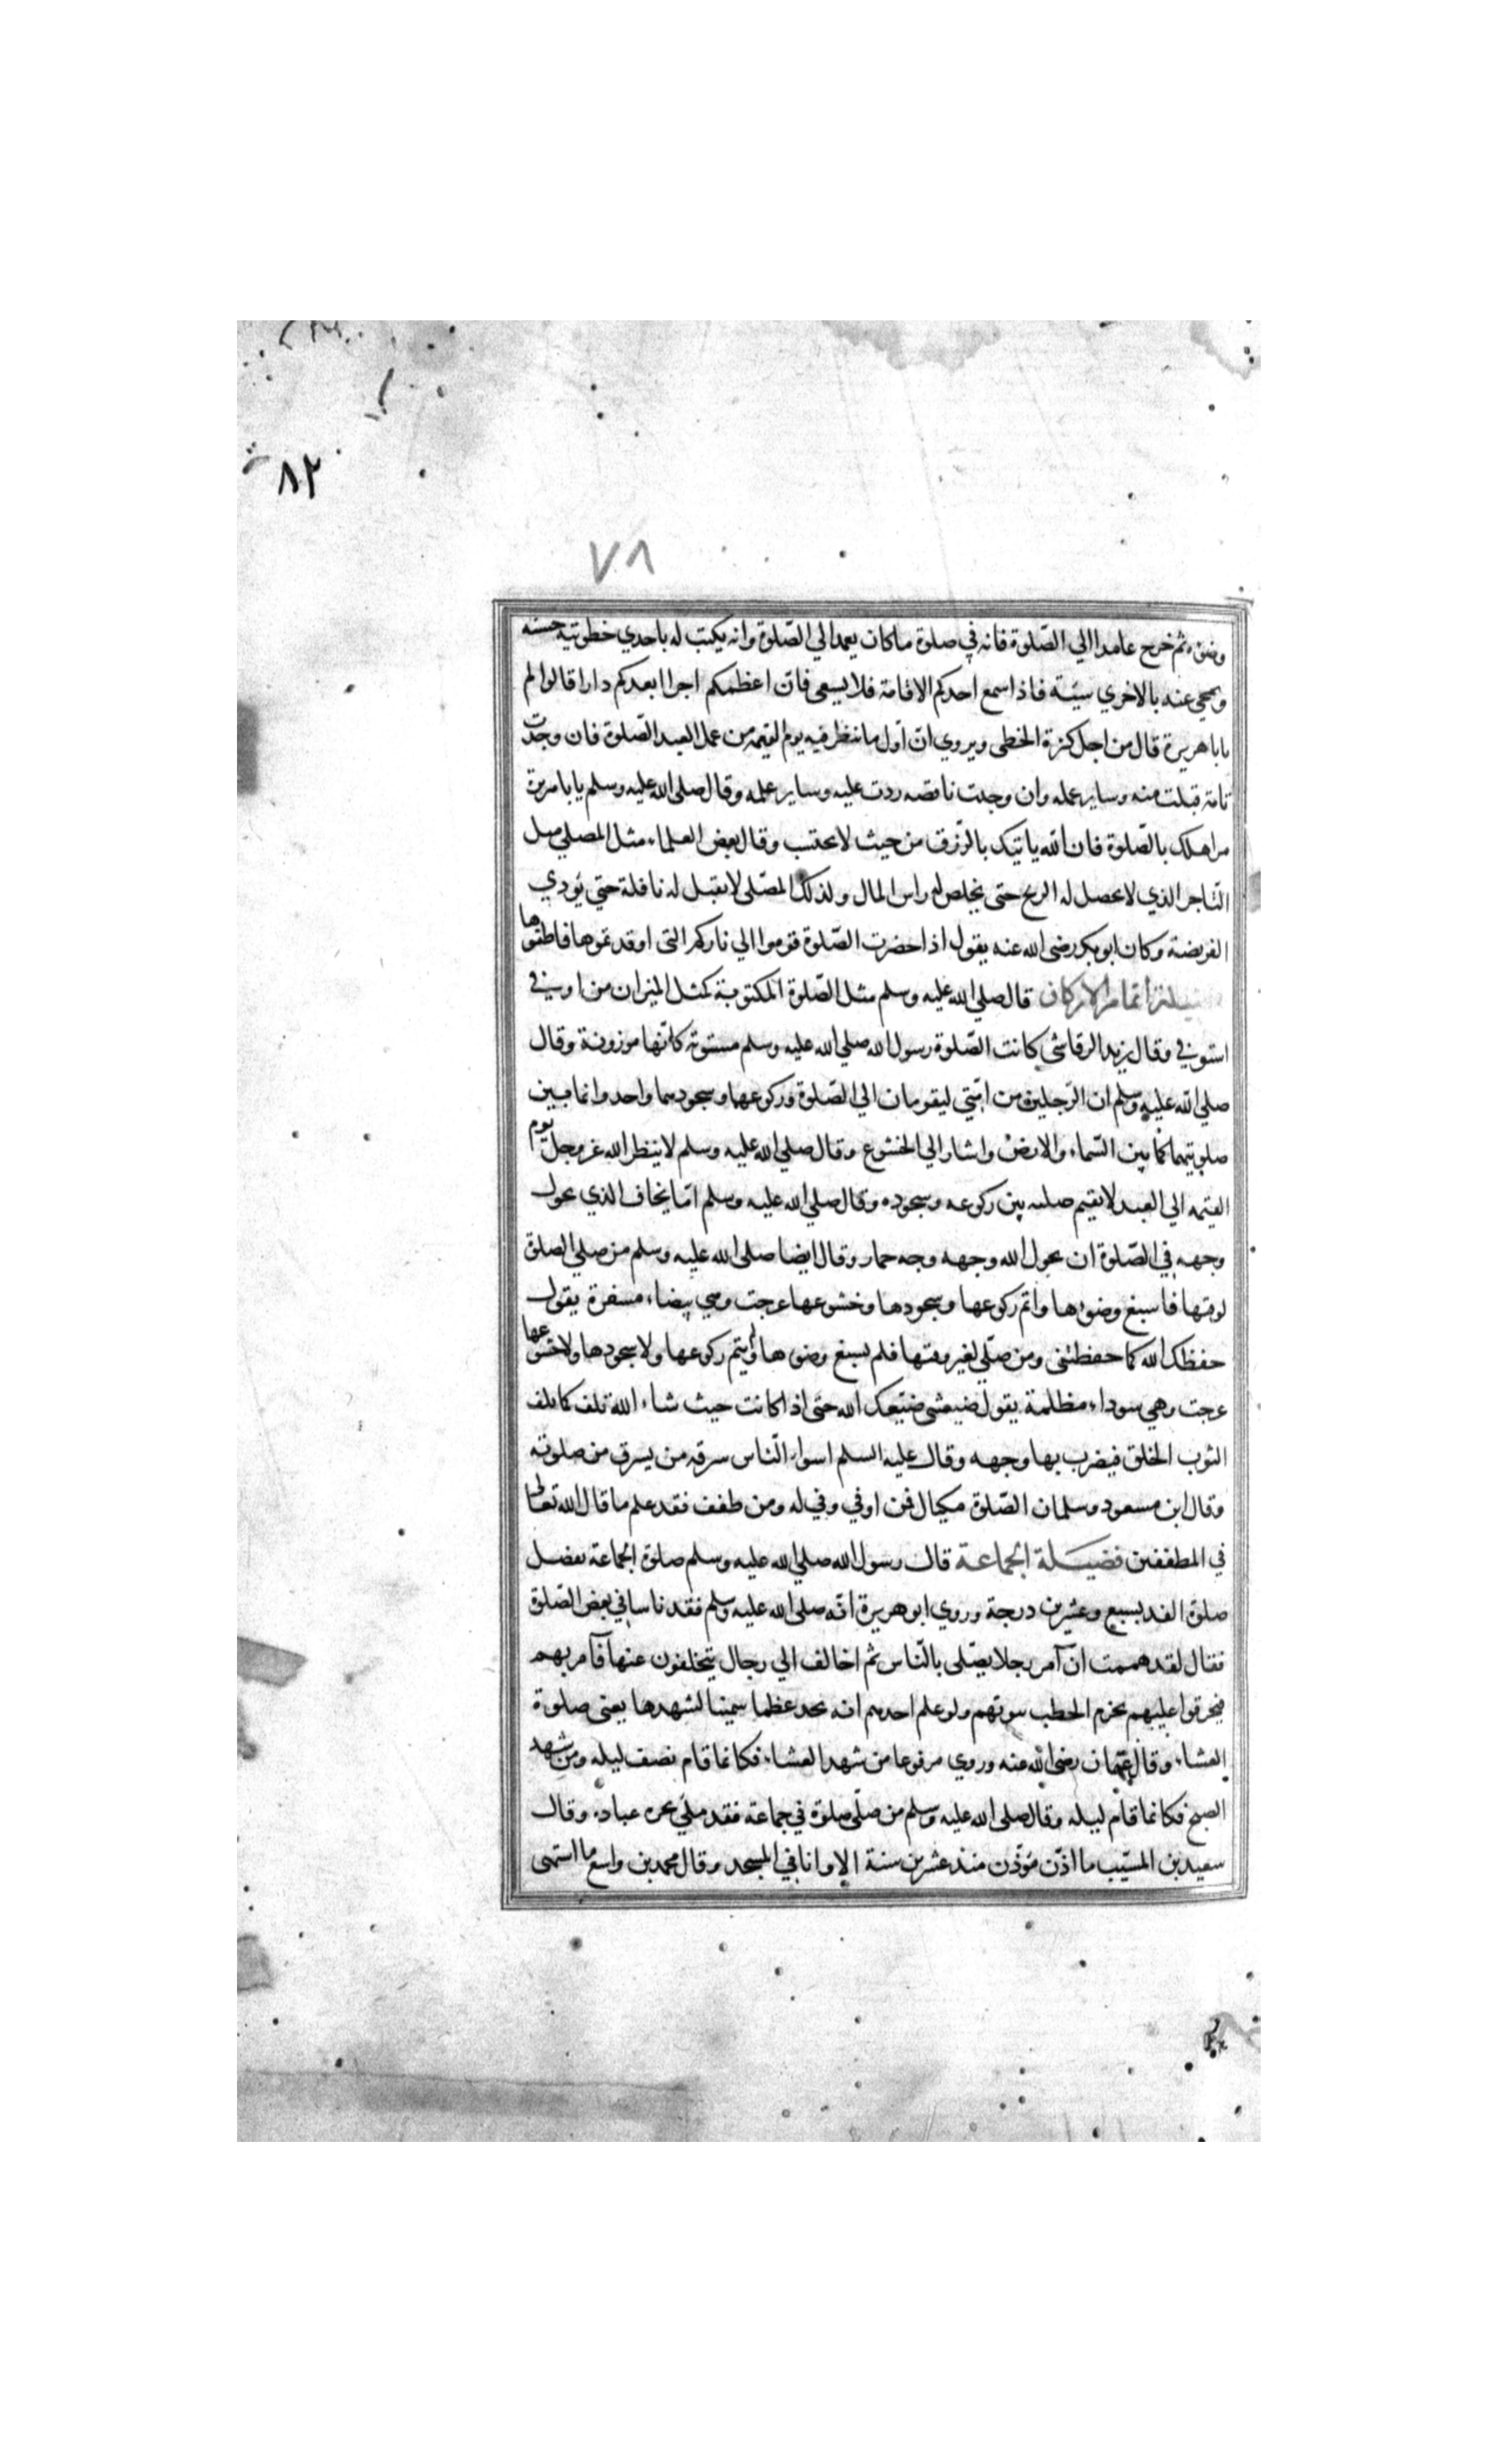 ٨٢
٧٨
وضوءه ثم خرج عامدا الي الصّلوة فانه في صلوة ماكان يعمد الي الصّلوة وانه يكتب له باحدي خطوتيه حسنه
ويمحي عنه بالاخري سيّئة فاذا سمع احدكم الاقامة فلا يسعي فانّ اعظمكم اجرا ابعدكم دارا قالوا لم
يابا هريرة قال من اجل كثرة الخطى ويروي انّ اوّل ما ننظر فيه يوم القيمه من عمل العبد الصّلوة فان وجدت
تامّة قبلت منه وساير عمله وان وجدت ناقصه ردت عليه وساير عمله وقال صلى الله عليه وسلم يابا هريرة
مر اهلك بالصّلوة فان الله ياتيك بالرّزق من حيث لا تحتسب وقال بعض العلماء مثل المصلي مثل
التّاجر الذي لا يحصل له الربح حتى يخلص له راس المال ولذلك المصّلى لا يقبل له نافلة حتي يؤدي
الفريضة وكان ابو بكر رضى الله عنه يقول اذا حضرت الصّلوة قوموا الي ناركم التى اوقدتموها فاطفوها
فضيلة اتمام الاركان قال صلي الله عليه وسلم مثل الصّلوة المكتوبة كمثل الميزان من اوفي
استوفي وقال يزيد الرقاشي كانت الصّلوة رسول الله صلي الله عليه وسلم مستوية كانّها موزونة وقال
صلي الله عليه وسلم ان الرّجلين من امّتي ليقومان الي الصّلوة وركوعهما وسجودهما واحد وانما مبين
صلوتيهما كما بين السّماء والارض واشار الي الخشوع وقال صلي الله عليه وسلم لا ينظر الله عز وجل يوم
القيمه الي العبد لا يقيم صلبه بين ركوعه وسجوده وقال صلي الله عليه وسلم امّا يخاف الذي يحول
وجهه في الصّلوة ان يحول الله وجهه وجه حمار وقال ايضا صلى الله عليه وسلم من صلي الصلوة
لوقتها فاسبغ وضوءها واتم ركوعها وسجودها وخشوعها عرجت وهي بيضاء مسفرة يقول
حفظك الله كما حفظتنى ومن صلّي لغير وقتها فلم يسبغ وضوءها ولم يتم ركوعها ولا سجودها ولا خشوعها
عرجت وهي سوداء مظلمة يقول ضيعتنى ضيّعك الله حتى اذا كانت حيث شاء الله تلف كما تلف
الثوب الخلق فيضرب بها وجهه وقال عليه السلم اسواء النّاس سرقه من يسرق من صلوته
وقال ابن مسعود وسلمان الصّلوة مكيال فمن اوفي وفي له ومن طفف فقد علم ما قال الله تعالى
في المطففين فضيلة الجماعة قال رسول الله صلي الله عليه وسلم صلوة الجماعة تفضل
صلوة الفذ بسبع وعشرين درجة وروي ابو هريرة انّه صلى الله عليه وسلم فقد ناسا في بعض الصّلوة
فقال لقد هممت ان آمر رجلا يصّلى بالنّاس ثم اخالف الي رجال يتخلفون عنها فآمر بهم
فيحرقوا عليهم بحزم الحطب بيوتهم ولو علم احدهم انه يجد عظما سمينا لشهدها يعنى صلوة
العشاء وقال عثمان رضى الله عنه وروي مرفوعا من شهد العشاء فكانما قام نصف ليله ومن شهد
الصبح فكانما قام ليله وقال صلى الله عليه وسلم من صلّى صلوة في جماعة فقد ملي نحره عبادة وقال
سعيد بن المسيّب ما اذّن مؤذّن منذ عشرين سنة الا وانا في المسجد وقال محمد بن واسع ما اشتهى